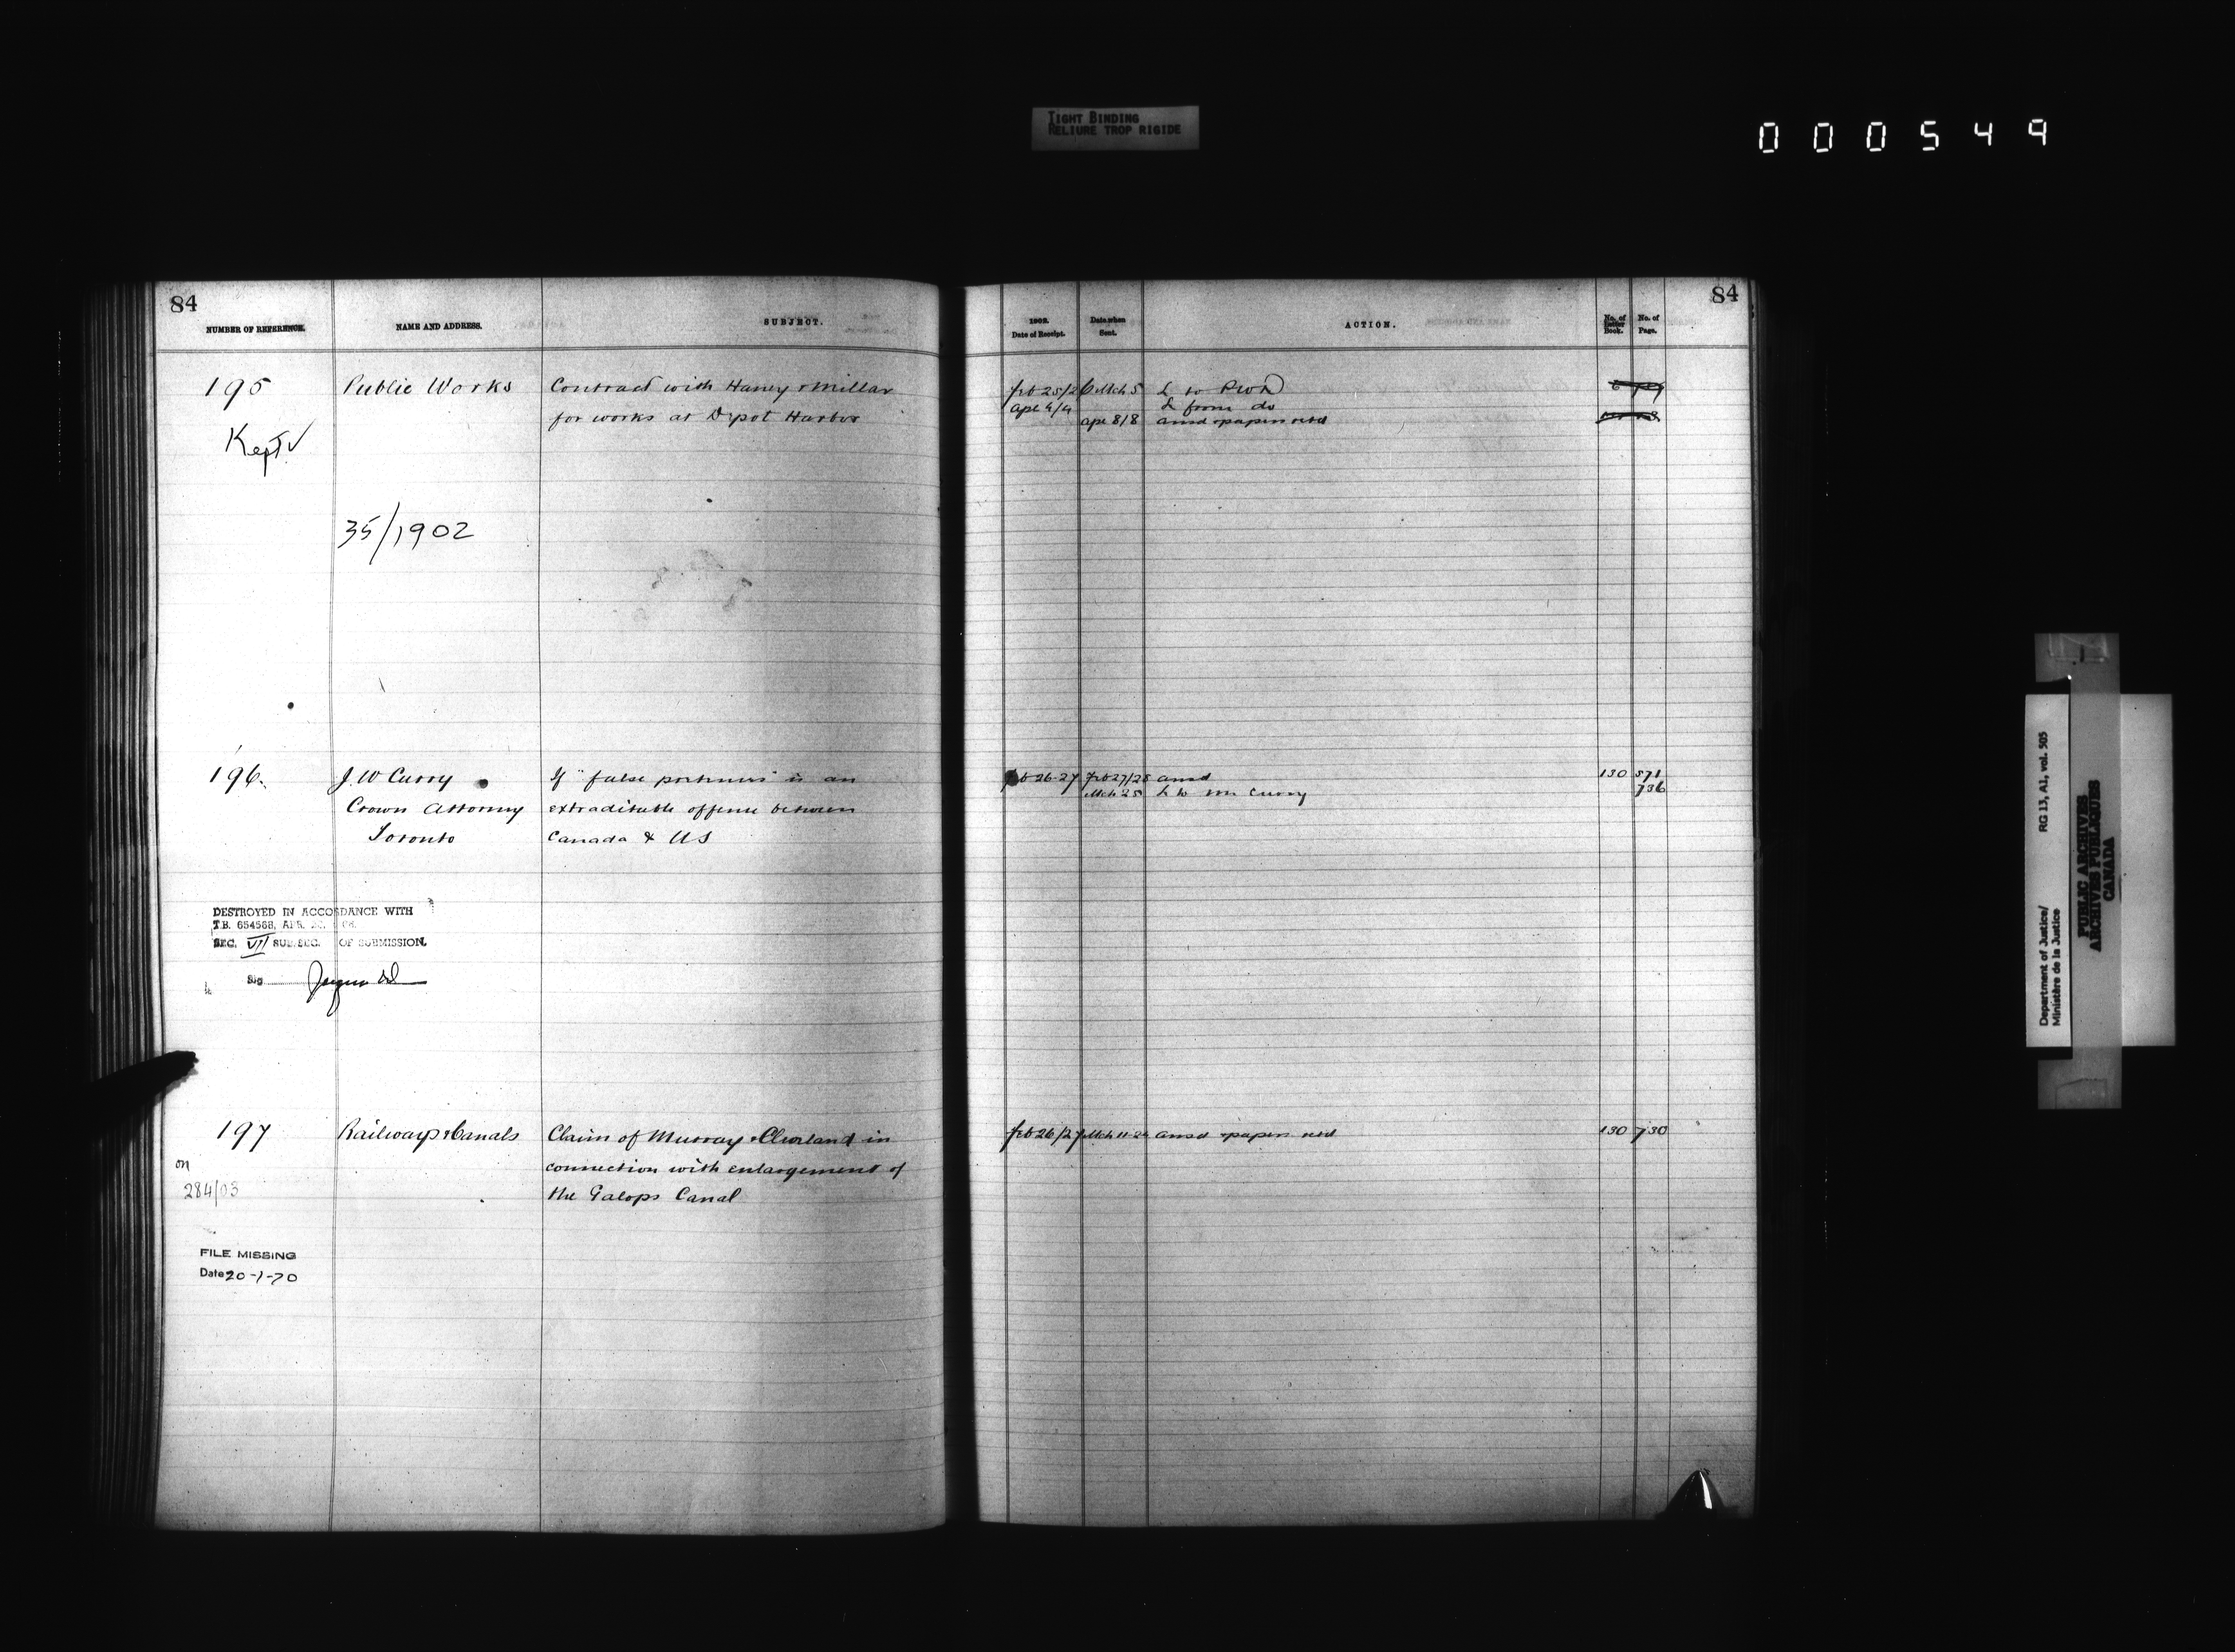 TIGHT BINDING
RELIURE TROP RIGIDE
000549
84
NUMBER OF REFERENCE.
NAME AND ADDRESS.
SUBJECT.
195
Public Works
Contract with Haney & Millar
for works at Depot Harbor
Kept
35/1902
196.
J. W Curry
If "false pretenses" is an
Crown Attorney
extraditable offense between
Toronto
Canada & US
DESTROYED IN ACCORDANCE WITH
T.B. 654568, APR.
SEC. VII SUB. SEC. OF SUBMISSION.
Sig
197
Railways & Canals
Claim of Murray & Cleveland in
connection with enlargement of
the Galops Canal
on
284/03
FILE MISSING
Date 20-1-70
84
1902.
Date of Receipt.
Date when
Sent.
ACTION.
No. of
Letter
Book.
No. of
Page.
Feb 25/26 Mch 5 L to PWD
Ape 4/4 L from do
Ape 8/8 ansd & papers retd
Feb 26-27 Feb 27/28 ansd 130 571
Mch 25 L to Mr Curry 736
Feb 26/27 Mch 11-24 ansd & papers retd 130 730
Department of Justice/
Ministère de la Justice
RG 13, A1, vol. 505
PUBLIC ARCHIVES
ARCHIVES PUBLIQUES
CANADA